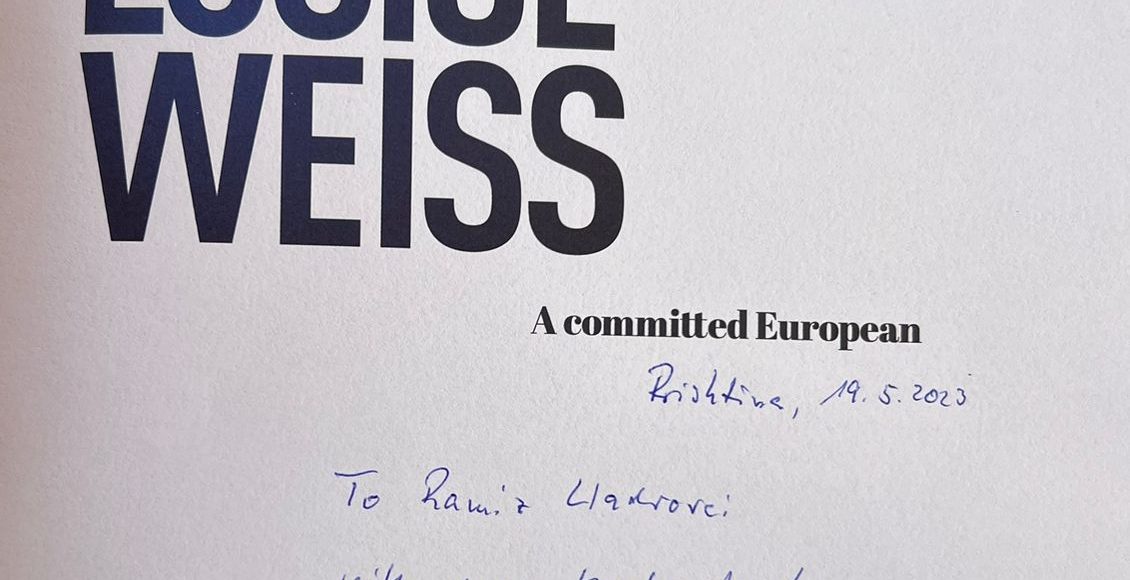 LOUISE
WEISS
A committed European
Prishtina, 19.5.2023
To Ramiz Lladrovci